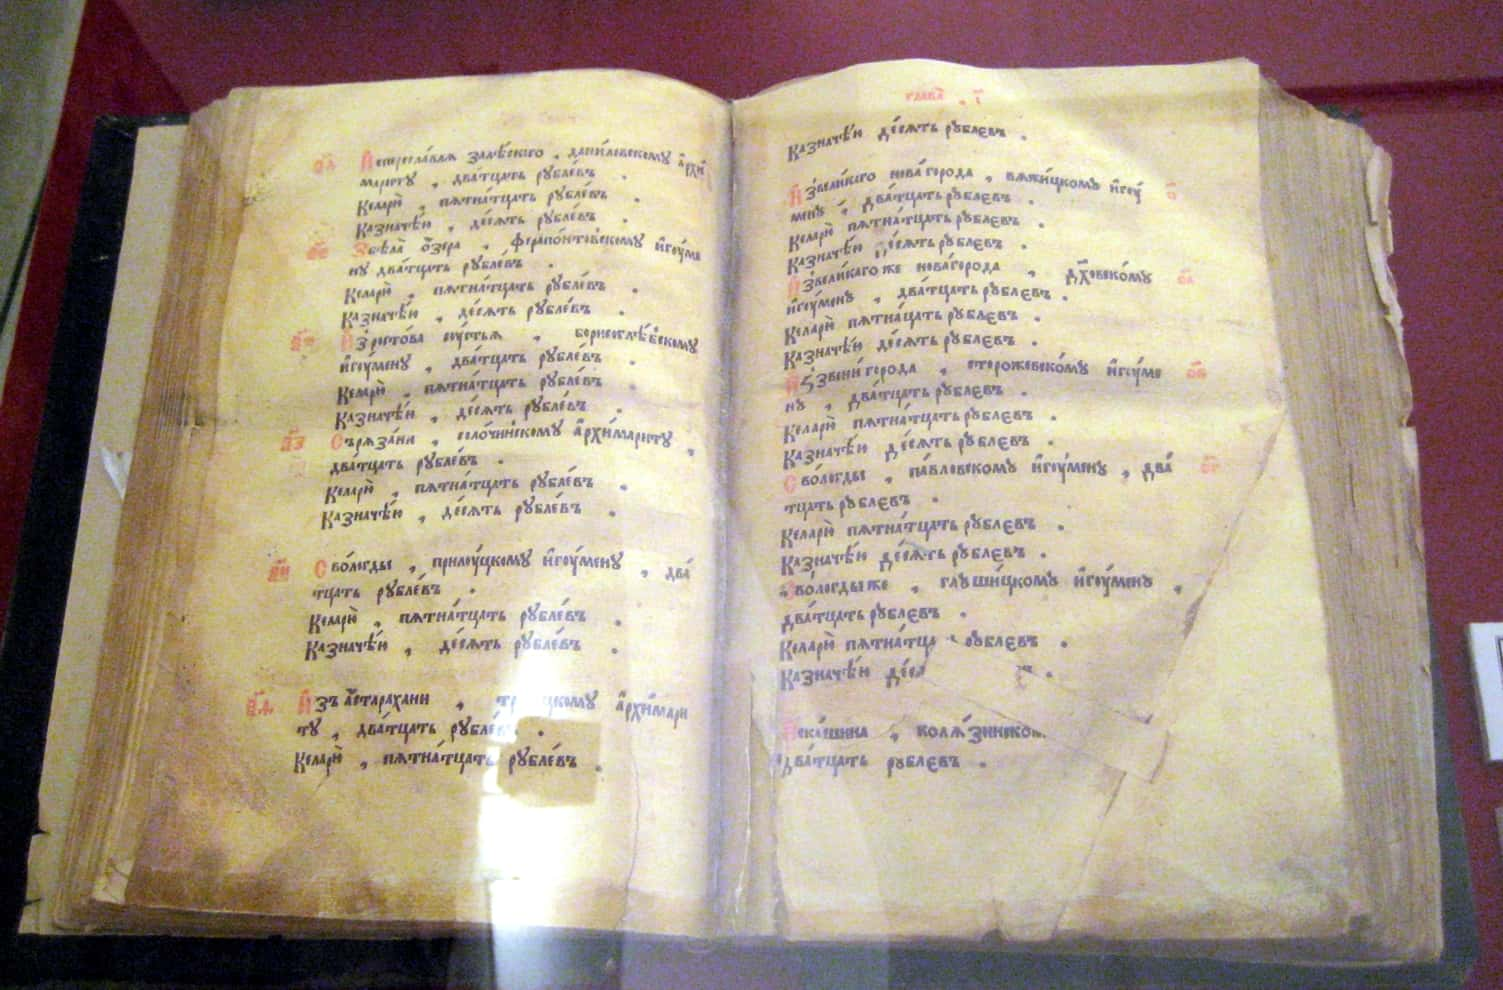 Ѿ переславля залѣскаго , данїловскому а҆рхи
мариту , два́тцать рубле́въ .
Келарю̀ , пятна́тцать рубле́въ .
Казначѣ́ю , де́сять рубле́въ .
Збѣла̀ ѻ҆́зера , ферапо́нтовскому и҆гоу́ме
ну два́тцать рубле́въ .
Келарю̀ , пятна́тцать рубле́въ .
Казначѣ́ю , де́сять рубле́въ .
И҆зросто́ва сꙋ́стья , борисоглѣ́бскому
и҆гоу́мену , два́тцать рубле́въ .
Келарю̀ , пятна́тцать рубле́въ .
Казначѣ́ю , де́сять рубле́въ .
Съряза́ни , соло́чинскому а҆рхи́мариту ,
два́тцать рубле́въ .
Келарю̀ , пятна́тцать рубле́въ .
Казначѣ́ю , де́сять рубле́въ .
Сво́логды , прилоу́цкому и҆гоу́мену , два́
тцать рубле́въ .
Келарю̀ , пятна́тцать рубле́въ .
Казначѣ́ю , де́сять рубле́въ .
И҆зъ а҆́старахани , а҆рхи́мари
ту , два́тцать рубле́въ .
Келарю̀ , пятна́тцать рубле́въ .
Казначѣ́ю де́сять рублевъ .
И҆звели́каго нова́города , вяжи́цкому и҆гоу́
мену , два́тцать рублевъ .
Келарю̀ пятна́тцать рублевъ .
Казначѣ́ю де́сять рублевъ .
И҆звели́каго же нова́города , дꙋ҃ховско́му
и҆гоу́мену , два́тцать рублевъ .
Келарю̀ пятна́цать рублевъ .
Казначѣ́ю де́сять рублевъ .
И҆ззвени́города , сторожевско́му и҆гоу́ме
ну , два́тцать рублевъ .
Келарю̀ пятна́тцать рублевъ .
Казначѣ́ю де́сять рублевъ .
Сво́логды , па́вловскому и҆гоу́мену , два́
тцать рублевъ .
Келарю̀ пятна́тцать рублевъ .
Казначѣ́ю де́сять рублевъ .
Сво́логды же , глуши́цкому и҆гоу́мену ,
два́тцать рублевъ .
Келарю̀ пятна́тца рублевъ .
Казначѣ́ю де́ся .
Иска́шина , коля́зинском
два́тцать рублевъ .